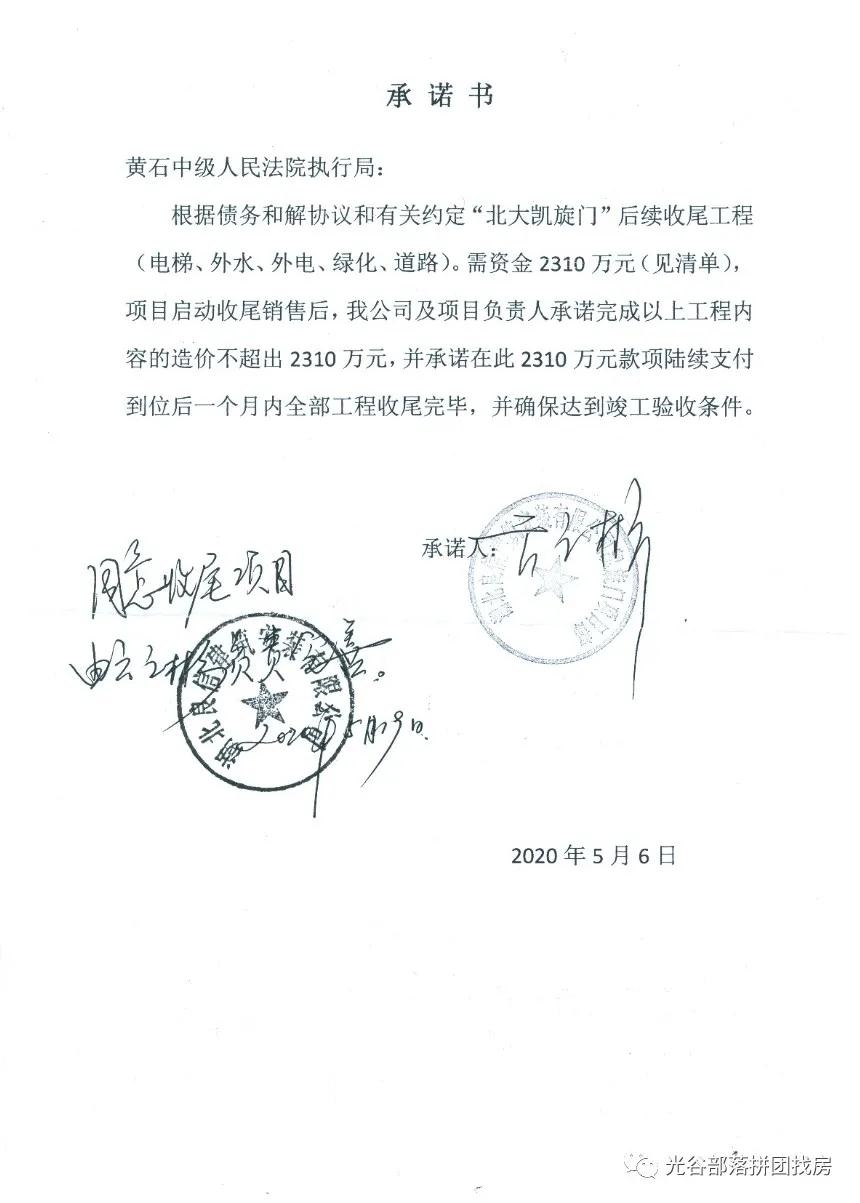 承诺书
黄石中级人民法院执行局：
根据债务和解协议和有关约定“北大凯旋门”后续收尾工程
（电梯、外水、外电、绿化、道路）。需资金2310万元（见清单），
项目启动收尾销售后，我公司及项目负责人承诺完成以上工程内
容的造价不超出2310万元，并承诺在此2310万元款项陆续支付
到位后一个月内全部工程收尾完毕，并确保达到竣工验收条件。
承诺人：
同意收尾项目
由云之彬负责。
2020年5月9日.
2020年5月6日
光谷部落拼团找房